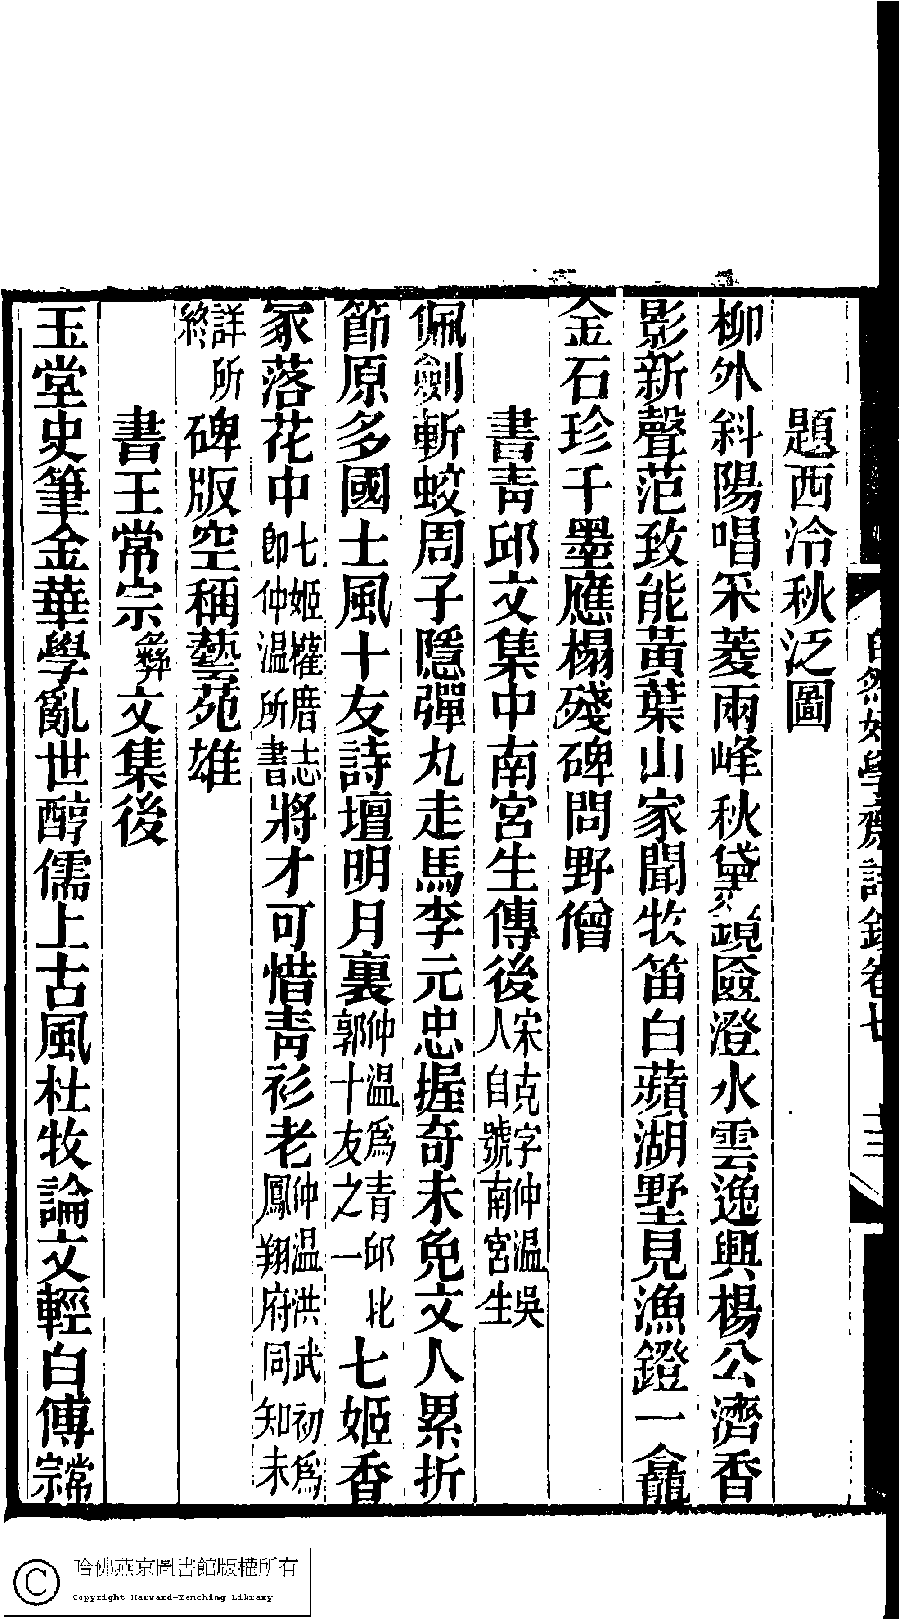 題西泠秋泛圖
柳外斜陽唱采菱兩峰秋黛鏡匳澄水雲逸興楊公濟香
影新聲范致能黃葉山家聞牧笛白蘋湖墅見漁鐙一龕
金石珍千墨應榻殘碑問野僧
書青邱文集中南宮生傳後宋克字仲温吳人自號南宮生
佩劍斬蛟周子隱彈丸走馬李元忠握奇未免文人累折
節原多國士風十友詩壇明月裏仲温爲青邱北郭十友之一七姬香
冢落花中七姬權厝志卽仲温所書將才可惜青衫老仲温洪武初爲鳳翔府同知未
詳所終碑版空稱藝苑雄
書王常宗彝文集後
玉堂史筆金華學亂世醇儒上古風杜牧論文輕白傅常宗
自然好學齋詩鈔卷七 十三
哈佛燕京圖書館版權所有
Copyright Harvard-Yenching Library